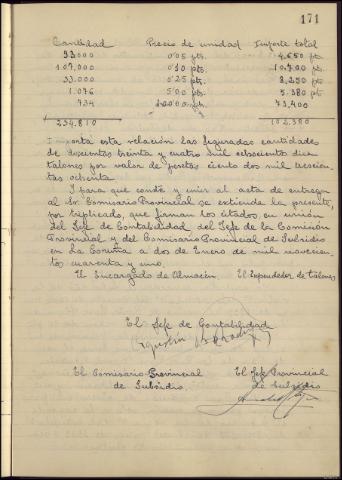 171
Cantidad Precio de unidad Importe total
93.000 0'05 pts. 4.650 pt.
107.000 0'10 pts. 10.700 pt.
33.000 0'25 pts. 8.250 pt.
1.076 5'00 pts. 5.380 pt.
734 100'00 pts. 73.400
234.810 102.380
Importa esta relación las figuradas cantidades
de doscientos treinta y cuatro mil ochocientos diez
talones por valor de pesetas ciento dos mil trescien
tas ochenta
Y para que conste y unir al acta de entrega
al Sr. Comisario Provincial se extiende la presente,
por triplicado, que firman los citados en unión
del Jefe de Contabilidad del Jefe de la Comisión
Provincial y del Comisario Provincial de Subsidio
en La Coruña a dos de Enero de mil novecien
tos cuarenta y uno.
El Encargado de Almacén, El Expendedor de Talones
El Jefe de Contabilidad
Agustín
El Comisario Provincial El Jefe Provincial
de Subsidio de Subsidio